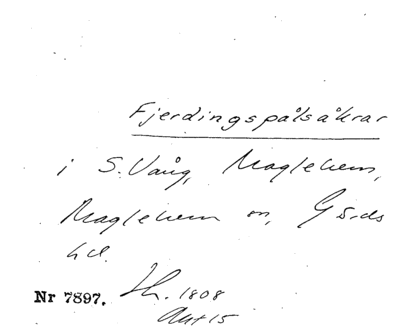 Fjerdingspålsåkrar
i S. Vång, Maglehem,
Maglehem sn, Gärds
hd.
Nr 7897. Th. 1808
Akt 15